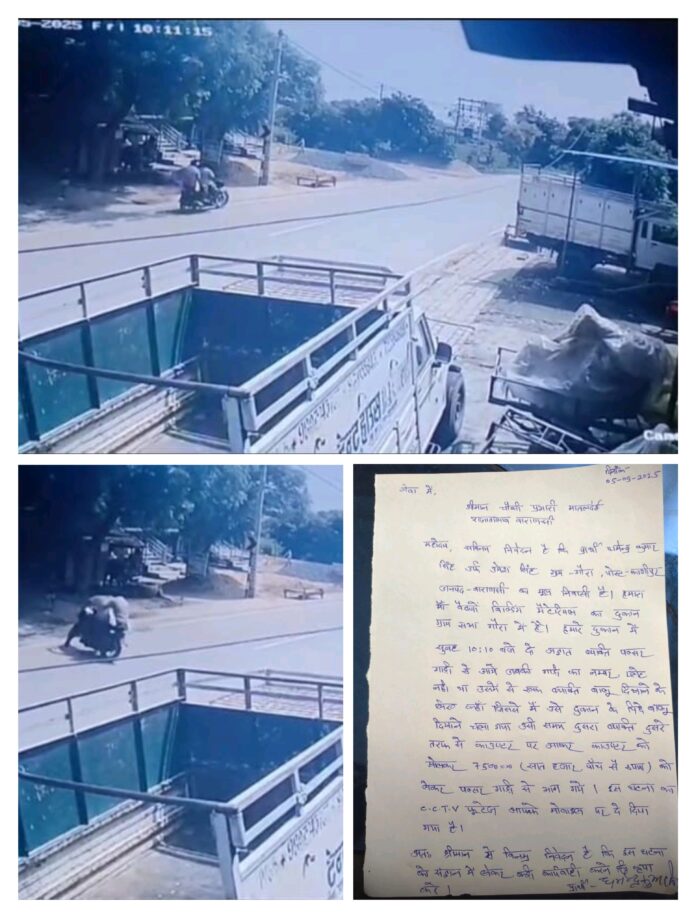 5-2025 Fri 10:11:15
टेन्ट हाउस
Cam
टेन्ट
दिनाँक
05-09-2025
सेवा में,
श्रीमान चौकी प्रभारी
राजातालाब वाराणसी
महोदय, सविनय निवेदन है कि प्रार्थी धर्मेन्द्र कुमार
सिंह उर्फ सिंह ग्राम - गौरा पोस्ट-काशीपुर
जनपद-वाराणसी का मूल निवासी है। हमारा
माँ वैष्णो बिल्डिंग मैटेरियल का दुकान
ग्राम सभा गौरा में है। हमारे दुकान में
सुबह 10:10 बजे दो अज्ञात व्यक्ति पल्सर
गाड़ी से आये जबकी गाड़ी का नम्बर प्लेट
नही था उसमें से एक व्यक्ति बालू दिखाने के
लिये कहा जिससे मैं उसे दुकान के पिछे बालू
दिखाने चला गया उसी समय दुसरा व्यक्ति दुसरे
तरफ से काउण्टर पर आकर काउण्टर को
खोलकर 7500=00 (सात हजार पाँच सौ रूपये) को
लेकर पल्सर गाड़ी से भाग गये। इस घटना का
C.C.T.V फुटेज आपके मोबाइल पर दे दिया
गया है।
अतः श्रीमान से विनम्र निवेदन है कि इस घटना
को संज्ञान में लेकर कड़ी कार्यवाही करने की कृपा
करें। प्रार्थी -